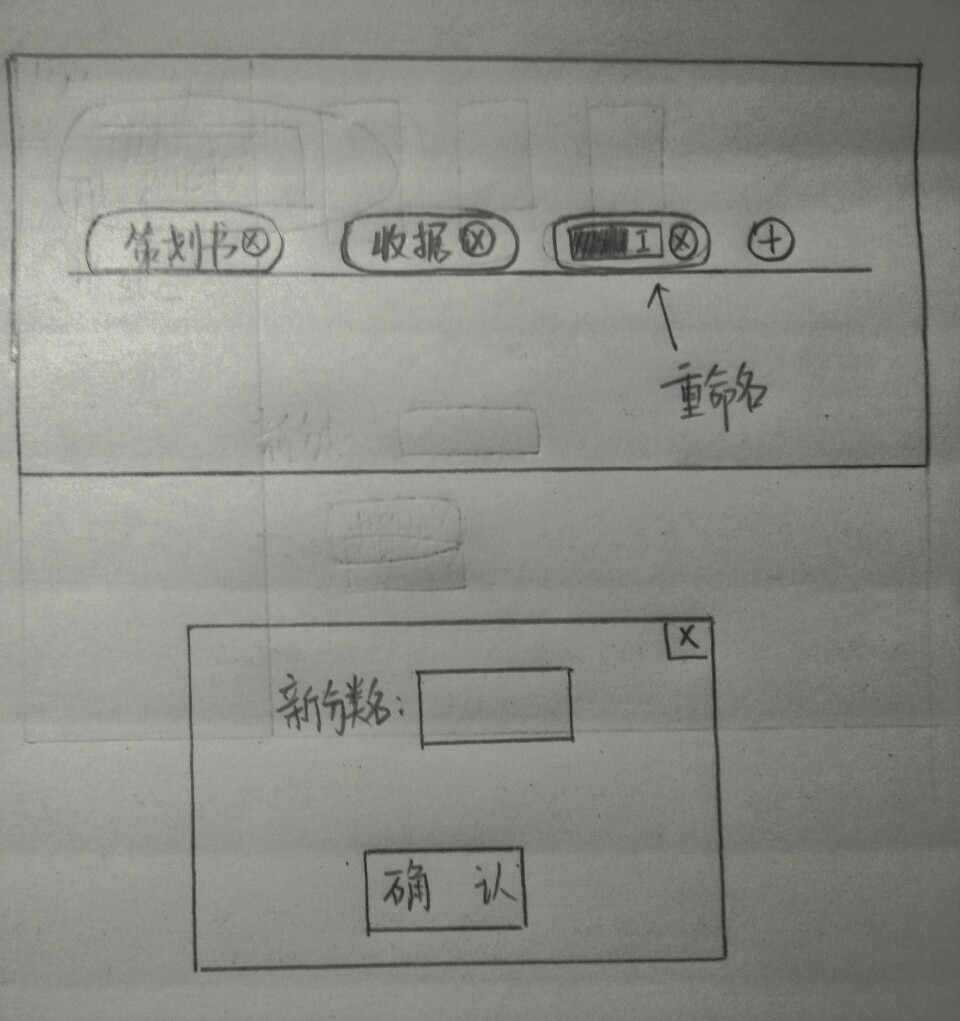 策划书 ⓧ 收据 ⓧ I ⓧ ⊕
重命名
X
新分类名:
确 认